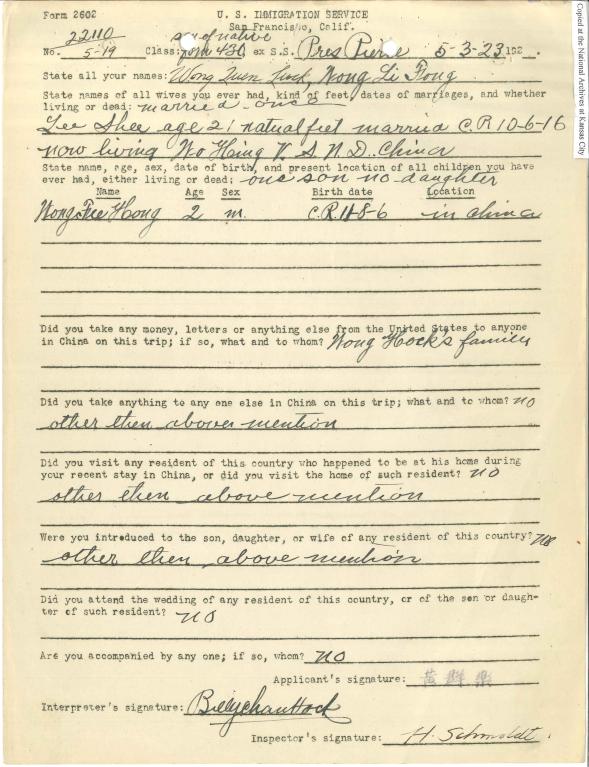 Form 2602
U. S. IMMIGRATION SERVICE
San Francisco, Calif.
Copied at the National Archives at Kansas City
22110 son of native
No. 5-19 Class: form 430, ex S.S. Pres Pierce 5-3-23, 192 .
State all your names: Wong Li Fong
State names of all wives you ever had, kind of feet, dates of marriages, and whether
living or dead: married - once
Lee Shee age 21 natural feet married C.R 10-6-16
now living Wo Hing V. S. N. D.. China
State name, age, sex, date of birth, and present location of all children you have
ever had, either living or dead: one son no daughter
Name Age Sex Birth date Location
Wong Hong 2 m. C.R 11-8-6 in China
Did you take any money, letters or anything else from the United States to anyone
in China on this trip; if so, what and to whom? Wong Hock's family
Did you take anything to any one else in China on this trip; what and to whom? no
other then above mention
Did you visit any resident of this country who happened to be at his home during
your recent stay in China, or did you visit the home of such resident? no
other then above mention
Were you introduced to the son, daughter, or wife of any resident of this country?
other then above mention
Did you attend the wedding of any resident of this country, or of the son or daugh-
ter of such resident? no
Are you accompanied by any one; if so, whom? no
Applicant's signature: 黃群樂
Interpreter's signature:
Inspector's signature: H. Schmoldt.